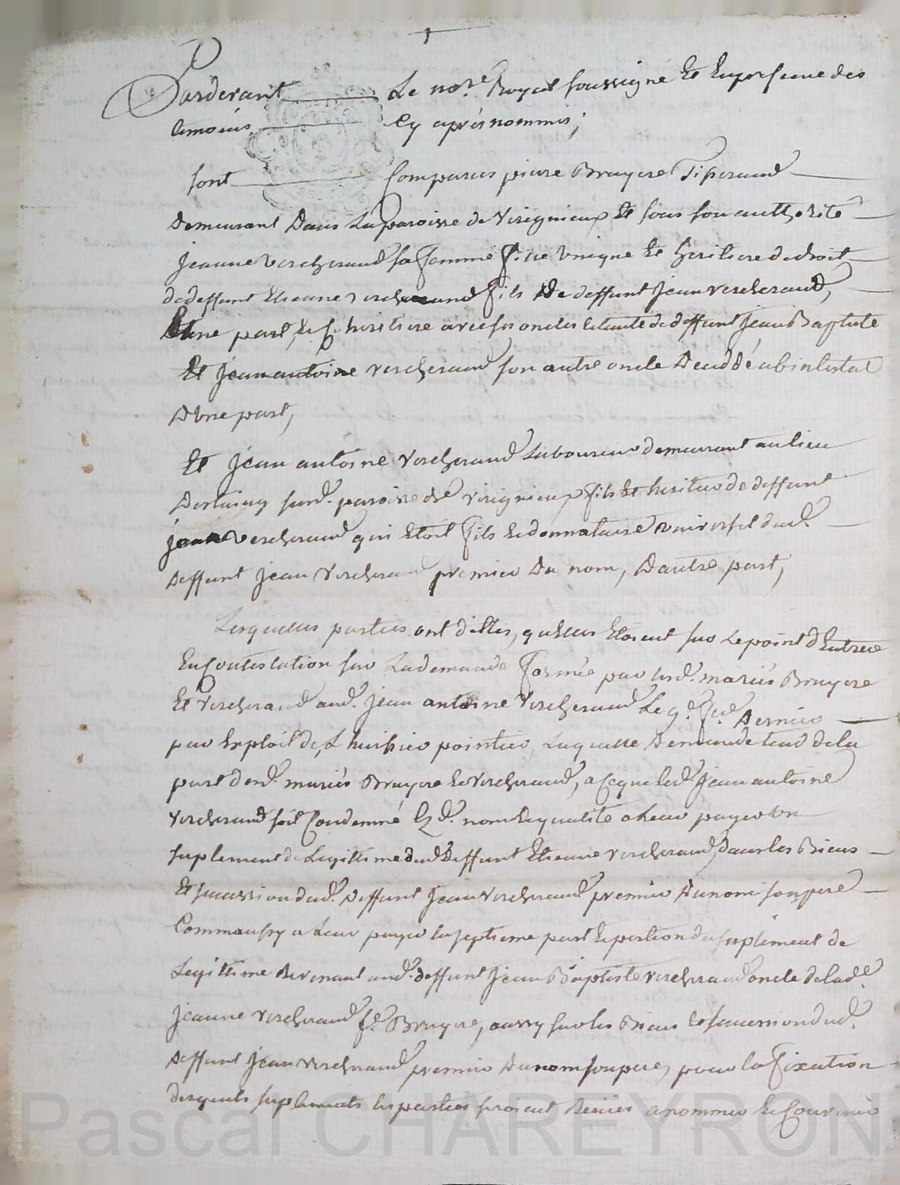 Pardevant Le nore Royal soussigné Et En presence des
temoins Cy après nommés;
sont Comparus pierre Bruyere Tisserand
Demeurant Dans La paroisse de Virignieux Et sous son authorité
Jeanne Vercherand sa femme fille Unique Et heritiere de droit
de deffunt Etienne Vercherand fils De deffunt Jean Vercherand,
D'une part, Et heritiere avec ses oncles Et tante de deffunt Jean Baptiste
Et Jean antoine Vercherand son autre oncle Decedé abintestat
D'une part,
Et Jean antoine Vercherand Laboureur demeurant au lieu
susd. paroisse de Virignieux fils Et heritier de deffunt
Jean Vercherand qui Etoit fils Et donnataire Universel dud.
deffunt Jean Vercherand premier Du nom, D'autre part,
Lesquelles parties ont dittes, quelles Etoient sur Le point d'Entrer
En Contestation sur La demande formée par lesd. mariés Bruyere
Et Vercherand aud. Jean antoine Vercherand Le Dernier
par Exploit de L'huissier pointier, Laquelle Demande tend de la
part desd. mariés Bruyere Et Vercherand, a Ceque led. Jean antoine
Vercherand soit Condemné Esd. nom Et qualité a Leur payer un
suplement de Legittime dud. deffunt Etienne Vercherand, dans les Biens
Et succession dud. deffunt Jean Vercherand premier Du nom son pere
Comme aussy a Leur payer La septieme part Et portion du suplement de
Legittime Revenant aud. deffunt Jean Baptiste Vercherand oncle de lade.
Jeanne Vercherand fe. Bruyere, aussy sur les Biens Et succession dud.
deffunt Jean Vercherand premier Du nom son pere, pour la fixation
desquels suplements les parties seroient a nommer Et Convenir
Pascal CHAREYRON